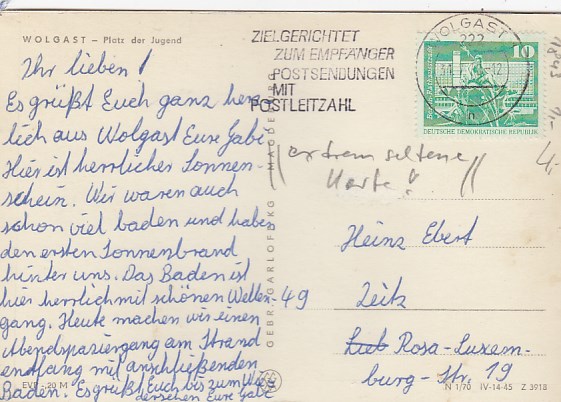 WOLGAST – Platz der Jugend
Ihr lieben!
Es grüßt Euch ganz herz-
lich aus Wolgast Eure Gabi
Hier ist herrlicher Sonnen-
schein. Wir waren auch
schon viel baden und haben
den ersten Sonnenbrand
hinter uns. Das Baden ist
hier herrlich mit schönen Wellen-
gang. Heute machen wir einen
Abendspaziergang am Strand
entlang mit anschließenden
Baden. Es grüßt Euch bis zum Wie-
dersehen Eure Gabi
EVP -,20 M
ZIELGERICHTET
ZUM EMPFÄNGER
POSTSENDUNGEN
MIT
POSTLEITZAHL
WOLGAST
222
10
DEUTSCHE DEMOKRATISCHE REPUBLIK
1843
1,-
4,-
extrem seltene
Karte!
Heinz Ebert
49 Zeitz
Rosa-Luxem-
burg-Str. 19
N 1/70 IV-14-45 Z 3918